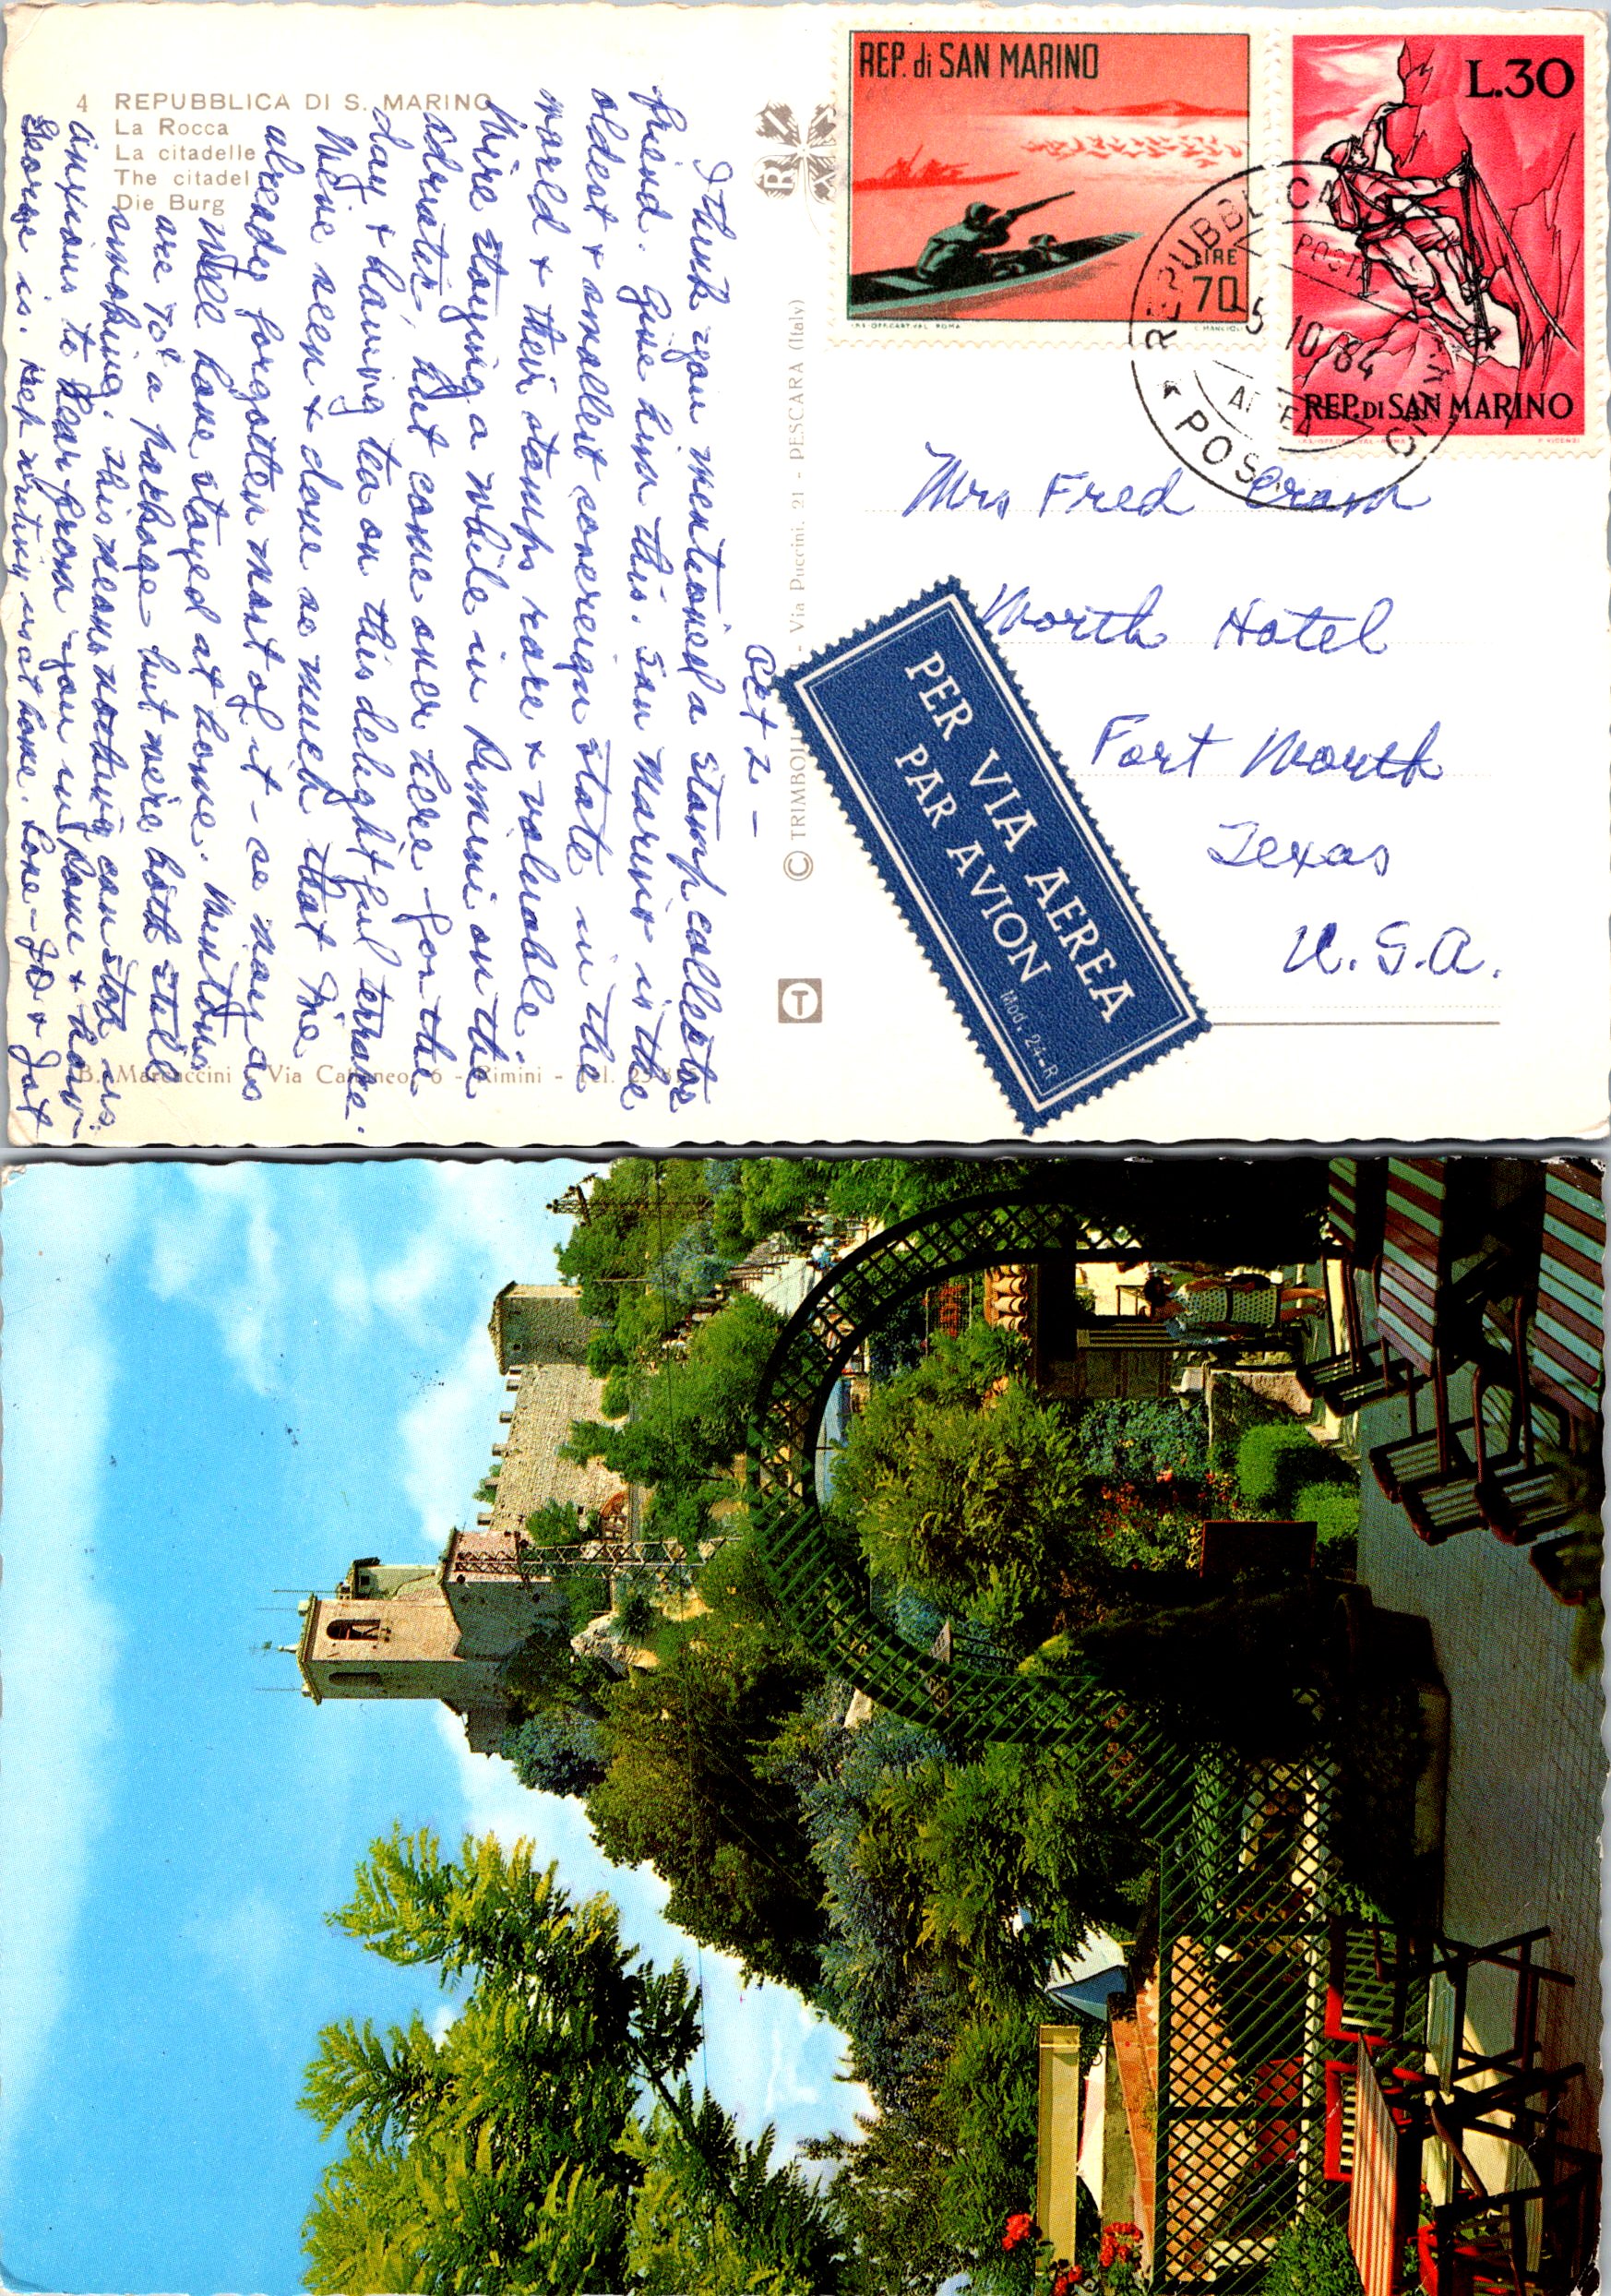 4 REPUBBLICA DI S. MARINO
La Rocca
La citadelle
The citadel
Die Burg
Oct 2 -
I think you mentioned a stamp collector
friend. Give him this. San Marino is the
oldest & smallest sovereign state in the
world & their stamps rare & valuable.
We're staying a while in Rimini on the
Adriatic, but come over here for the
day & having tea on this delightful terrace.
We've seen & done so much that I've
already forgotten most of it - so many as
well have stayed at home.
are 70¢ a package but we're both still
smoking. This means nothing can stop us.
Anxious to hear from you in Rome & how
George is. Kep writing most home. Love - Jo & Jat
© TRIMBOLI - Via Puccini, 21 - PESCARA (Italy)
B. Marcaccini - Via Cattaneo, 6 - Rimini - Tel.
REP. di SAN MARINO
LIRE
70
L.30
REP. DI SAN MARINO
REPUBBLICA
POSTA
5 10 64
Mrs Fred Cram
Worth Hotel
Fort Worth
Texas
U.S.A.
PER VIA AEREA
PAR AVION
Mod. 24-R
T